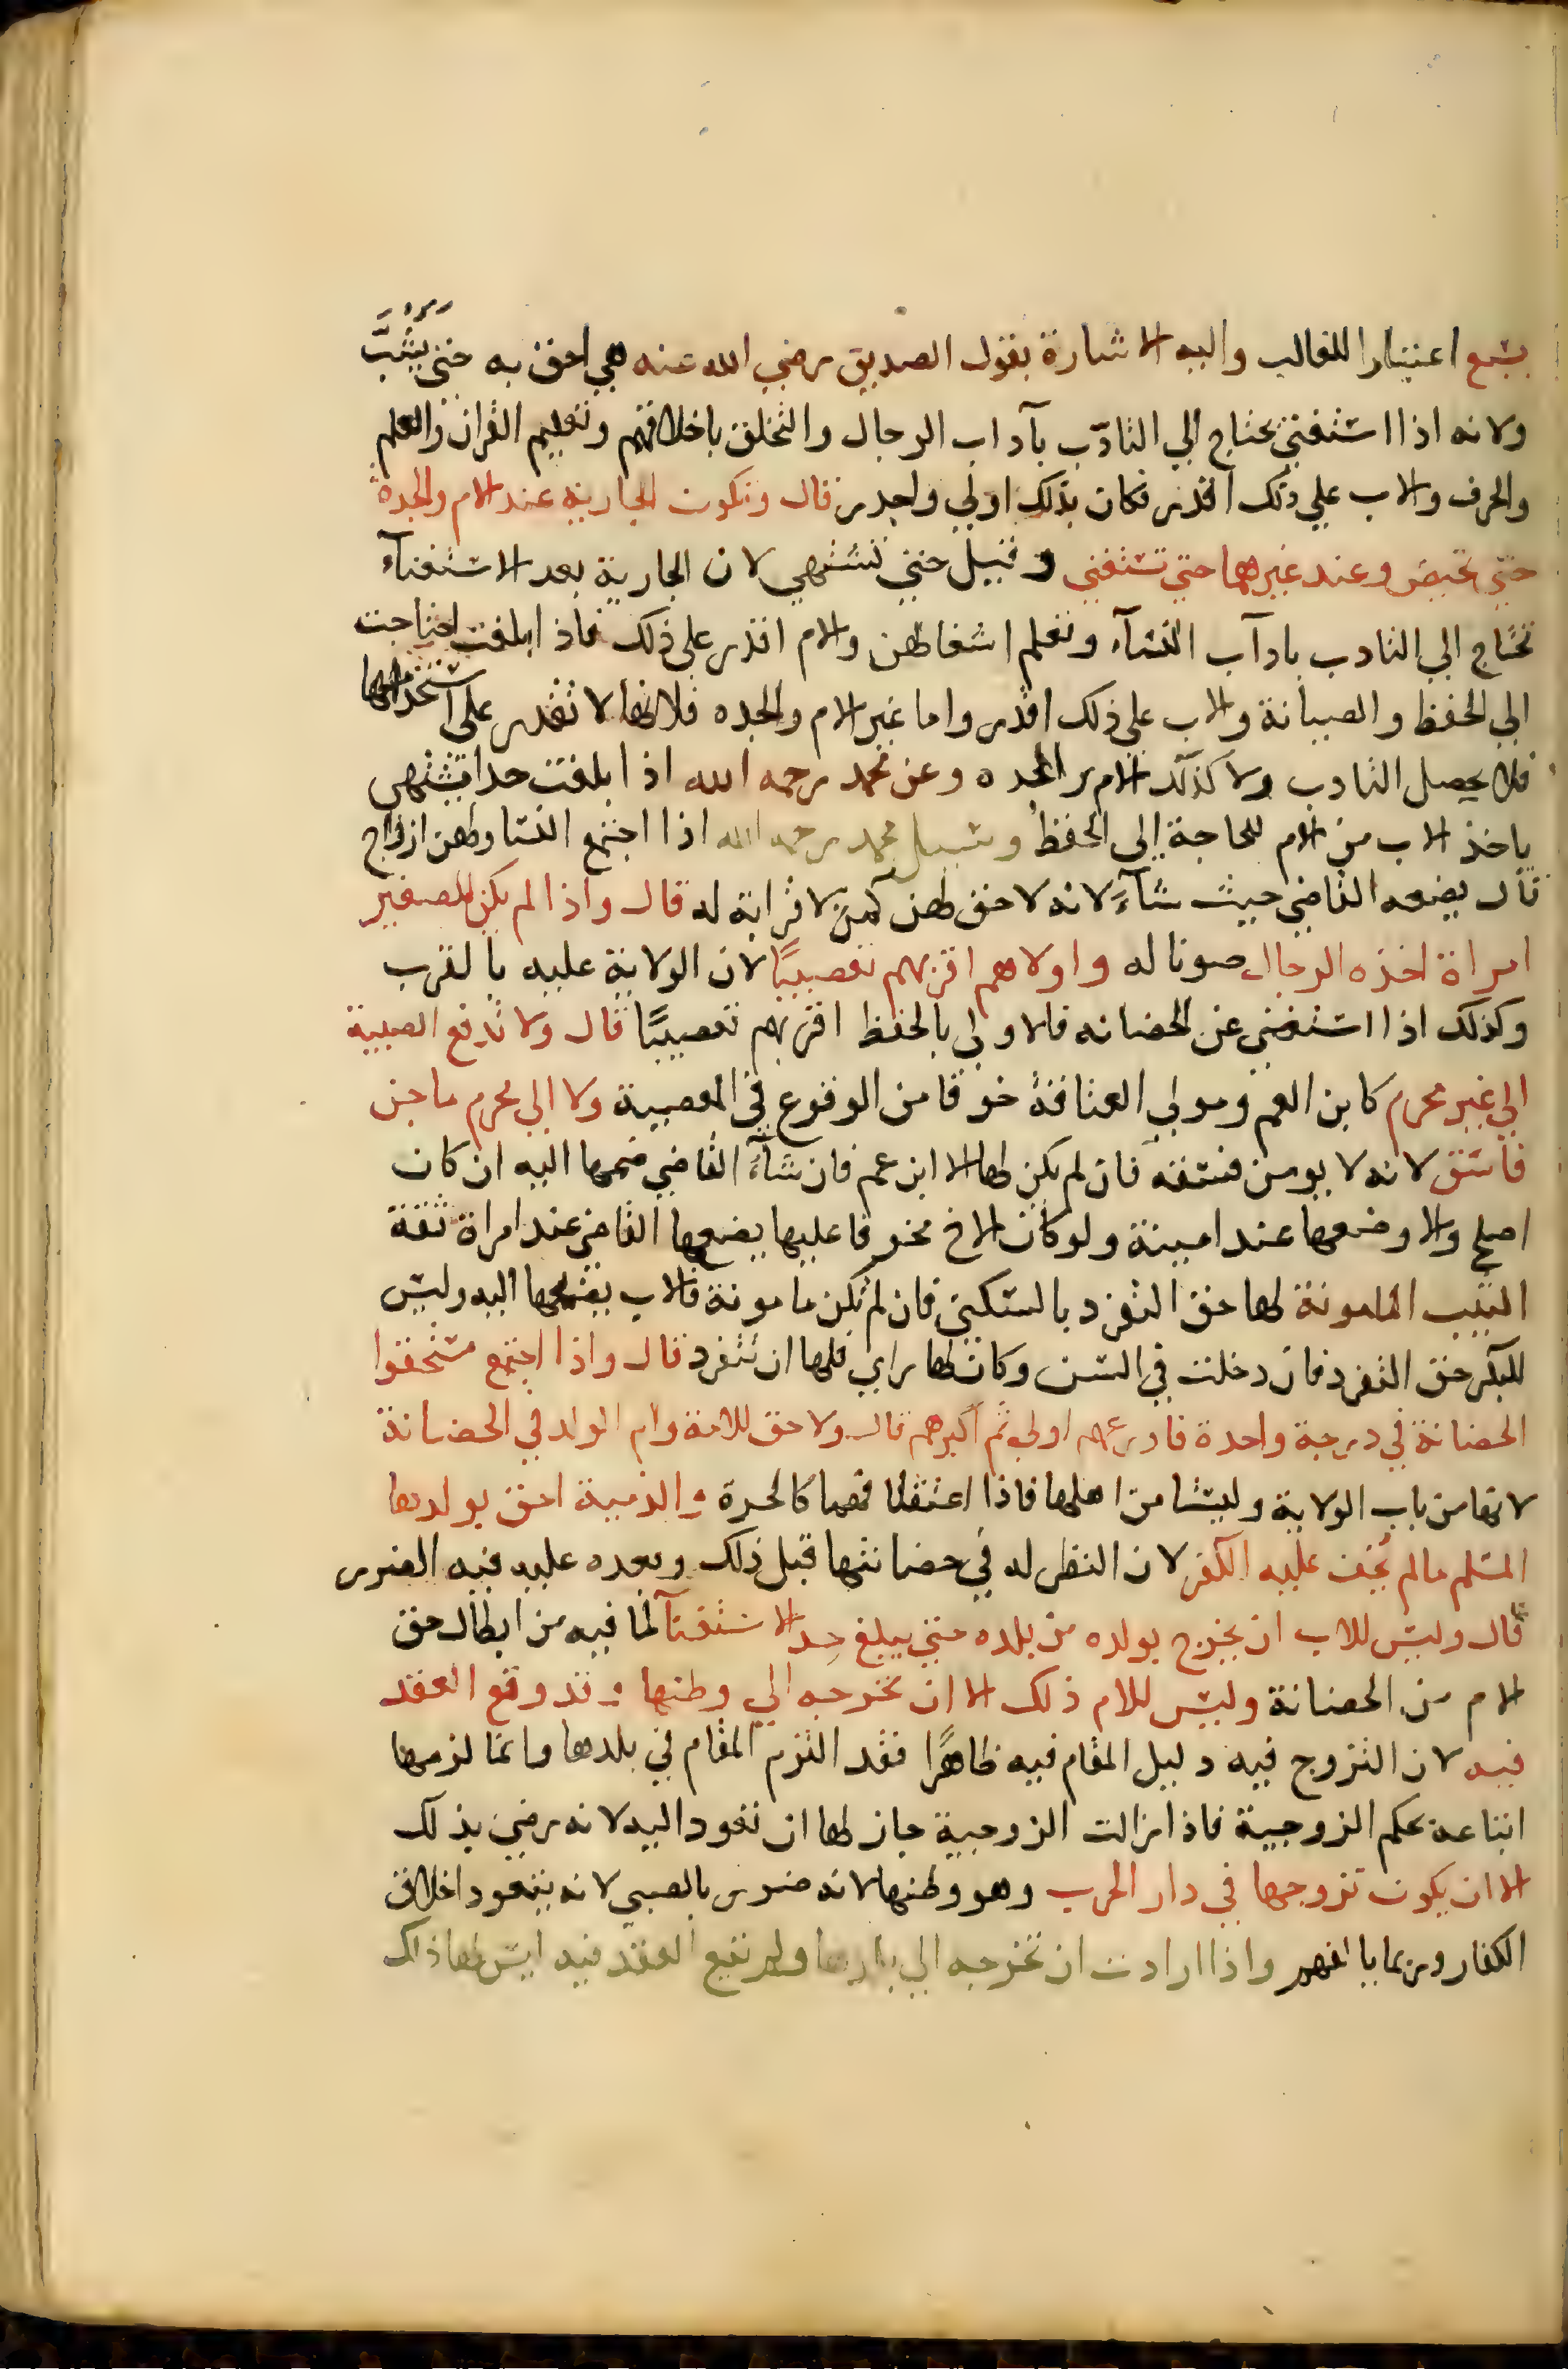 بتسع اعتبارا للغالب واليه الاشارة بقول الصديق رضي الله عنه هي احق به حتى يشبّ
ولانه اذا استغنى يحتاج الي التادّب بآداب الرجال والتخلق باخلاقهم وتعليم القران والعلم
والحرف والاب علي ذلك اقدر فكان بذلك اولي واجدر قال وتكون الجارية عند الام والجدة
حتى تحيض وعند غيرهما حتى تستغني وقيل حتى تشتهي لان الجارية بعد الاستغناء
تحتاج الي التادب بادآب النسآء وتعلم اشغالهن والام اقدر على ذلك فاذا بلغت احتاجت
الي الحفظ والصيانة والاب على ذلك اقدر واما غير الام والجده فلانها لا تقدر على استخدامها
فلا يحصل التادب ولا كذلك الام والجده وعن محمد رحمه الله اذا بلغت حدا تشتهي
ياخذ الاب من الام للحاجة إلى الحفظ وسيل محمد رحمه الله اذا اجتمع النسا ولهن ازواج
قال يضعه القاضي حيث شآءَ لانه لا حق لهن كمن لا قرابة له قال واذا لم يكن للصغير
امراة اخذه الرجال صونا له واولاهم اقربهم تعصيبًا لان الولاية عليه بالقرب
وكذلك اذا استغنى عن الحضانه فالاولي بالحفظ اقربهم تعصيبًا قال ولا تدفع الصبية
الي غير محرم كابن العم ومولي العتاقة خوفا من الوقوع في المعصية ولا الي محرم ماجن
فاسق لانه لا يومن فسقه فان لم يكن لها الا ابن عم فان شآءَ القاضي ضمها اليه ان كان
اصلح والا وضعها عند امينة ولو كان الاخ مخوفا عليها يضعها القاضي عند امراة ثقة
الثيب المامونة لها حق التفرد بالسكنى فان لم تكن مامونة فالاب يضمها اليه وليس
للبكر حق التفرد فان دخلت في السن وكان لها راي فلها ان تتفرد قال واذا اجتمع مستحقوا
الحضانة في درجة واحدة فاورعهم اولي ثم اكبرهم قال ولا حق للامة وام الولد في الحضانة
لانها من باب الولاية وليستا من اهلها فاذا اعتقتا فهما كالحرة والذمية احق بولدها
المسلم مالم يُخف عليه الكفر لان النظر له في حضانتها قبل ذلك وبعده عليه فيه الضرر
قال وليس للاب ان يخرج بولده من بلده حتى يبلغ حد الاستغنآ لما فيه من ابطال حق
الام من الحضانة وليس للام ذلك الا ان تخرجه الي وطنها وقد وقع العقد
فيه لان التزوج فيه دليل المقام فيه ظاهرًا فقد التزم المقام في بلدها وانما لزمها
اتباعه بحكم الزوجية فاذا زالت الزوجية جاز لها ان تعود اليه لانه رضي بذلك
الا ان يكون تزوجها في دار الحرب وهو وطنها لانه ضرر بالصبي لانه يتعود اخلاق
الكفار وربما يالفهم واذا ارادت ان تخرجه الي بلدها ولم تقع العقد فيه ليس لها ذلك